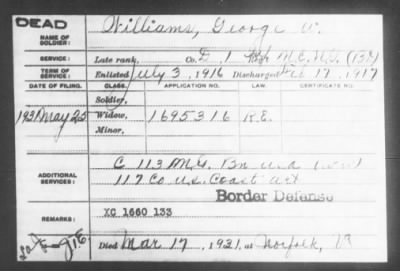 DEAD
NAME OF SOLDIER: Williams, George W.
SERVICE: Late rank, Co. D, 1
TERM OF SERVICE: Enlisted July 3, 1916 Discharged Feb 17, 1917
DATE OF FILING. CLASS. APPLICATION NO. LAW. CERTIFICATE NO.
Soldier,
1931 May 25 Widow, 1695316 R.E.
Minor,
C 113 M.G. Bn
ADDITIONAL SERVICES: 117 Co U.S. Coast Art
Border Defense
REMARKS: XC 1660 133
Died Mar 17, 1921, at Norfolk, V